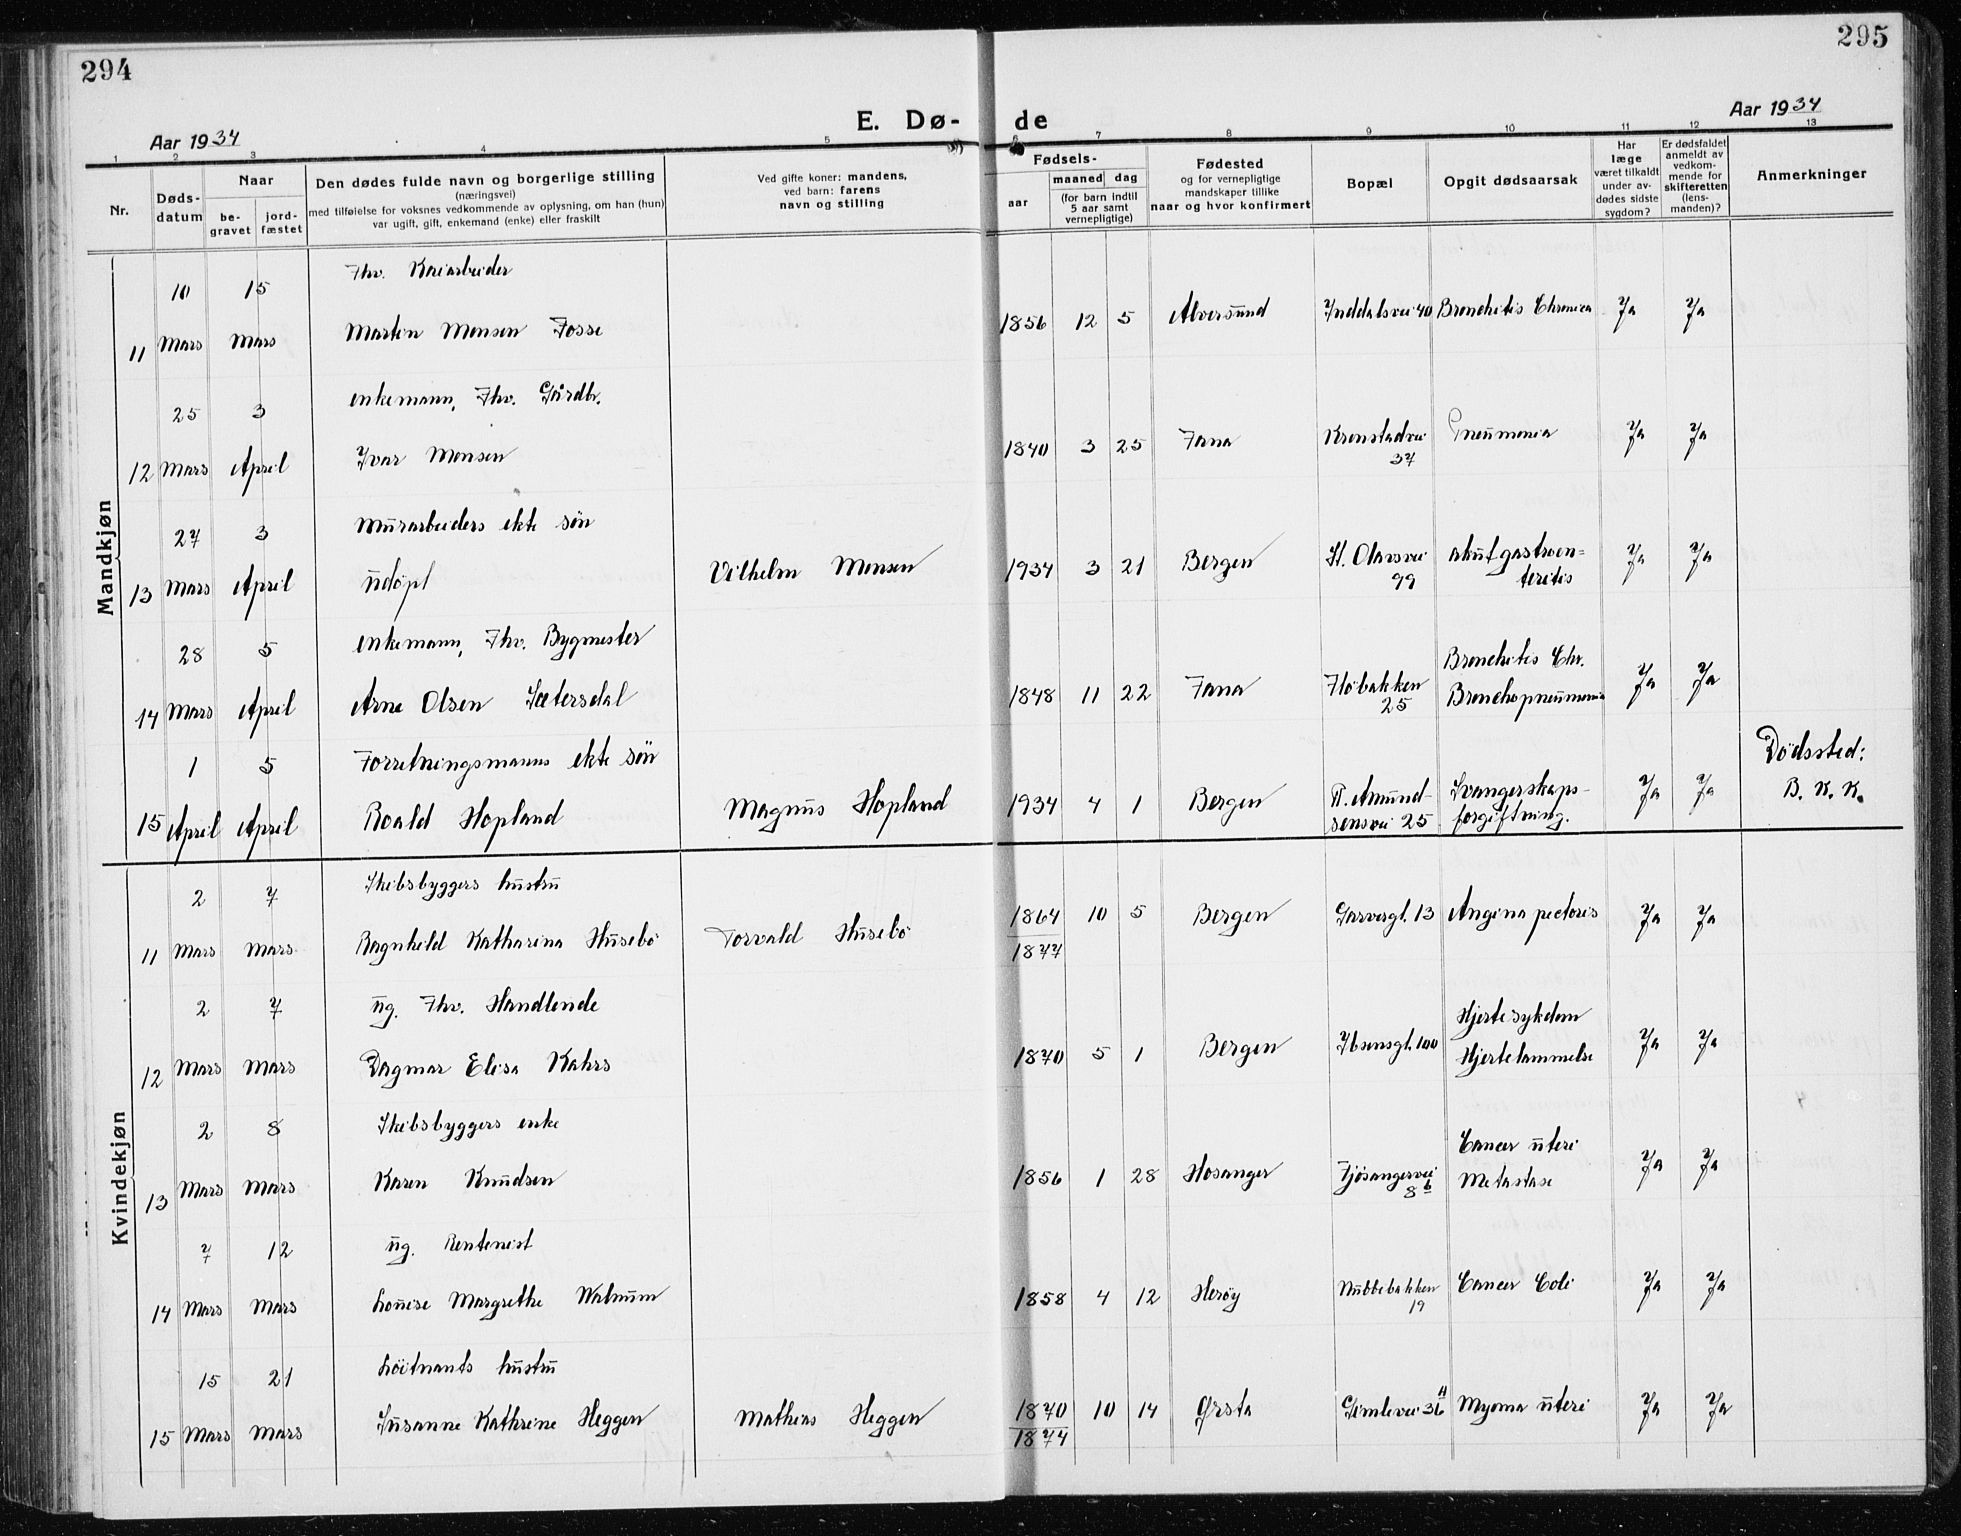 294
295
E. Dø- de
Aar 1934
Aar 1934
1 2 3 4 5 6 7 8 9 10 11 12 13
Nr.
Døds-
datum
Naar
be-
gravet
jord-
fæstet
Den dødes fulde navn og borgerlige stilling
(næringsvei)
med tilføielse for voksnes vedkommende av oplysning, om han (hun)
var ugift, gift, enkemand (enke) eller fraskilt
Ved gifte koner: mandens,
ved barn: farens
navn og stilling
Fødsels-
aar
maaned dag
(for barn indtil
5 aar samt
vernepligtige)
Fødested
og for vernepligtige
mandskaper tillike
naar og hvor konfirmert
Bopæl
Opgit dødsaarsak
Har
læge
været tilkaldt
under av-
dødes sidste
sygdom?
Er dødsfaldet
anmeldt av
vedkom-
mende for
skifteretten
(lens-
manden)?
Anmerkninger
Mandkjøn
10 15 Fhv. Kaiarbeider
11 Mars Mars Martin Monsen Fosse 1856 12 5 Alversund Inddalsvei 40 Bronchitis Chronica Ja Ja
25 3 enkemann, Fhv. Gårdbr.
12 Mars April Ivar Monsen 1840 3 25 Fana Kronstadvei 37 Pneumonia Ja Ja
27 3 Murarbeiders ekte søn
13 Mars April udøpt Vilhelm Monsen 1934 3 21 Bergen St. Olavsvei 99 akut gastroen=
teritis Ja Ja
28 5 enkemann, Fhv. Bygmester Bronchitis Chr.
14 Mars April Arne Olsen Sætersdal 1848 11 22 Fana Fløbakken 25 Bronchopneumonia Ja Ja
1 5 Forretningsmanns ekte søn Dødssted:
15 April April Roald Hopland Magnus Hopland 1934 4 1 Bergen R. Amund-
sensvei 25 Svangerskaps-
forgiftning. Ja Ja B. K. K.
Kvindekjøn
2 7 Skibsbyggers hustru
11 Mars Mars Ragnhild Katharina Husebø Torvald Husebø 1864 10 5 Bergen Garvergt. 13 Angina pectoris Ja Ja
1877
2 7 ug. Fhv. Handlende Hjertesykdom
12 Mars Mars Dagmar Elisa Kahrs 1870 5 1 Bergen Ibsensgt. 100 Hjertelammelse Ja Ja
2 8 Skibsbyggers enke Cancer uteri
13 Mars Mars Karen Knudsen 1856 1 28 Hosanger Fjøsangervei 8 b Metastase Ja Ja
7 12 ug. Rentenist
14 Mars Mars Louise Margrethe Walnum 1858 4 12 Herøy Nubbebakken 19 Cancer Coli Ja Ja
15 21 Løitnants hustru
15 Mars Mars Susanne Kathrine Heggen Mathias Heggen 1870 10 14 Ørsta Gimlevei 36 A Myoma uteri Ja Ja
1874